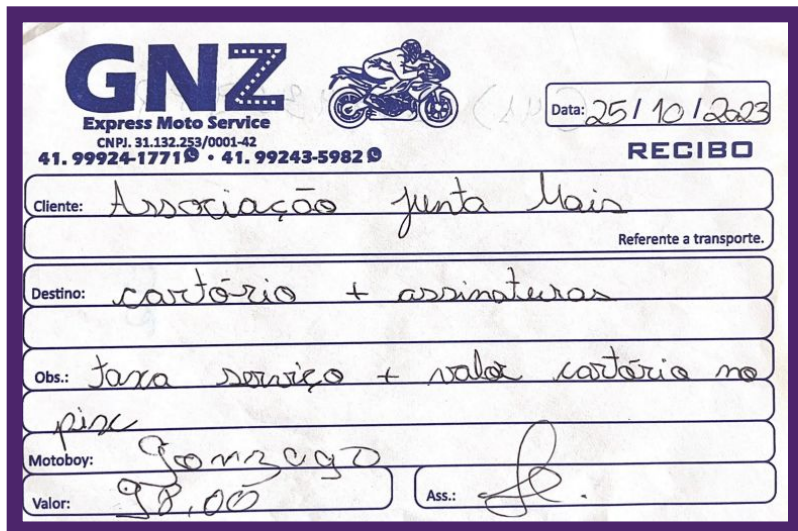 GNZ
Express Moto Service
CNPJ. 31.132.253/0001-42
41. 99924-1771 • 41. 99243-5982
Data: 25/10/2023
RECIBO
Cliente: Associação Junta Mais
Referente a transporte.
Destino: cartório + assinaturas
Obs.: taxa serviço + valor cartório no
pix
Motoboy: Gonzaga
Valor: 98,00 Ass.: